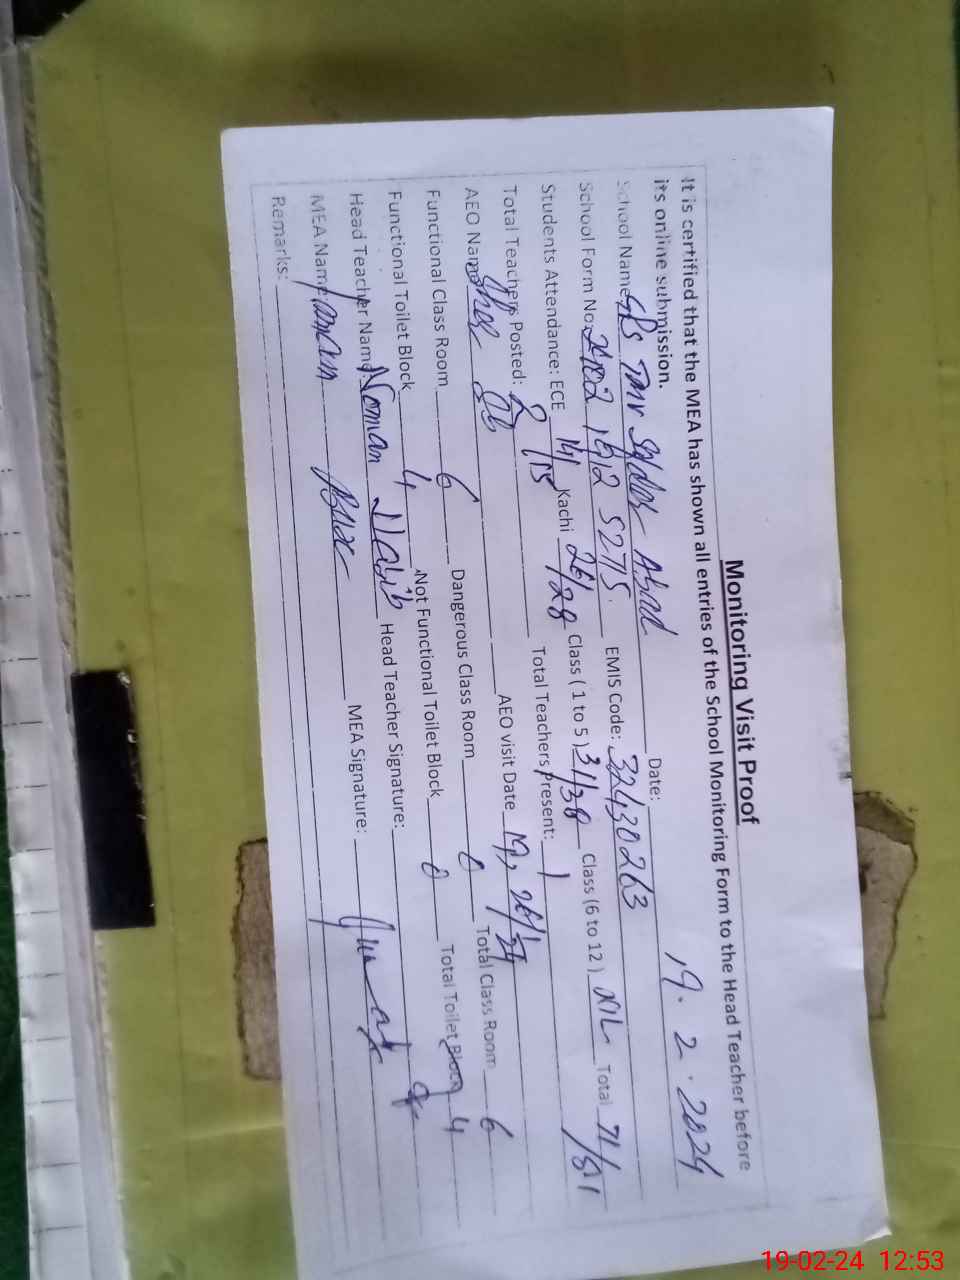 Monitoring Visit Proof
It is certified that the MEA has shown all entries of the School Monitoring Form to the Head Teacher before
its online submission.
School Name: GPS Abad Date: 19.2.2024
School Form No: EMIS Code: 32430263
Students Attendance: ECE 14/15 Kachi 26/28 Class ( 1 to 5 ) 31/38 Class (6 to 12 ) NIL Total 71/81
Total Teachers Posted: 2 Total Teachers Present: 1
AEO Name AEO visit Date
Functional Class Room 6 Dangerous Class Room 0 Total Class Room 6
Functional Toilet Block 4 Not Functional Toilet Block 0 Total Toilet Block 4
Head Teacher Name: Noman Habib Head Teacher Signature:
MEA Name: Bux MEA Signature:
Remarks:
19-02-24 12:53